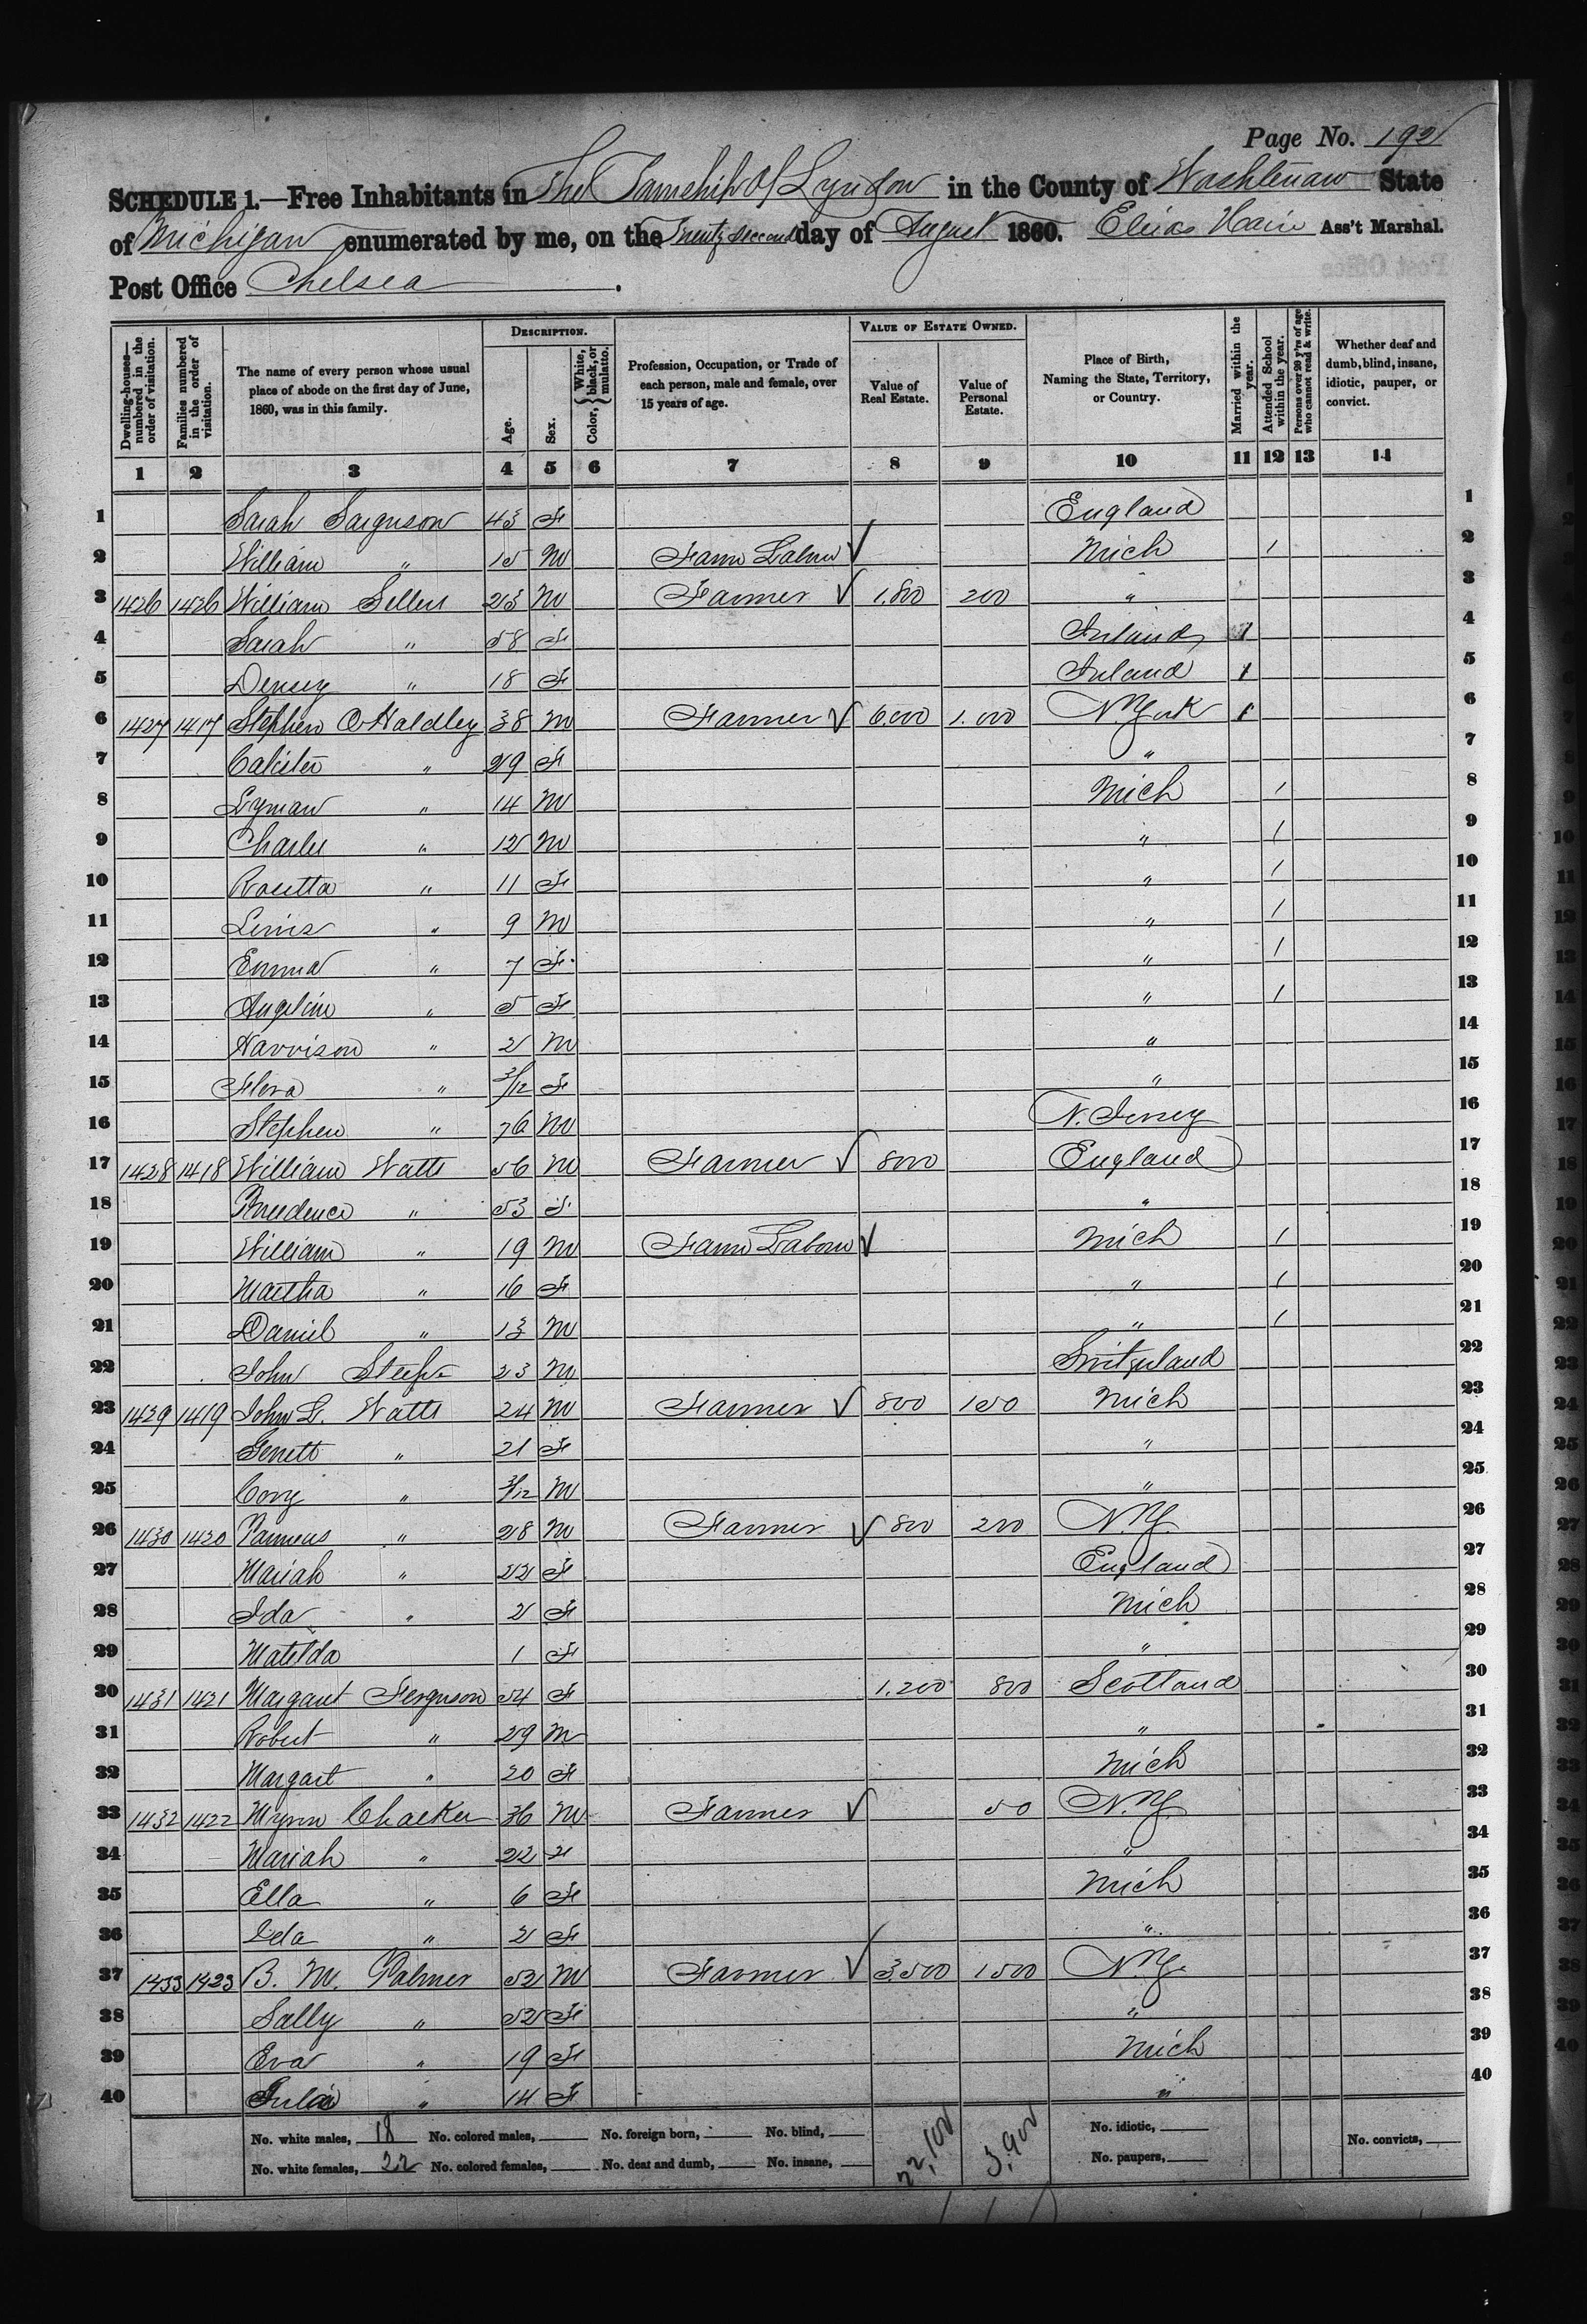 Page No. 192
SCHEDULE 1.—Free Inhabitants in The Township of Lyndon in the County of Washtenaw State
of Michigan enumerated by me, on the Twenty second day of August 1860. Elias Haire Ass't Marshal.
Post Office Chelsea.
Dwelling-houses—numbered in the order of visitation. Families numbered in the order of visitation. The name of every person whose usual place of abode on the first day of June, 1860, was in this family. DESCRIPTION. Age. Sex. Color, { White, black, or mulatto. Profession, Occupation, or Trade of each person, male and female, over 15 years of age. VALUE OF ESTATE OWNED. Value of Real Estate. Value of Personal Estate. Place of Birth, Naming the State, Territory, or Country. Married within the year. Attended School within the year. Persons over 20 y'rs of age who cannot read & write. Whether deaf and dumb, blind, insane, idiotic, pauper, or convict.
1 2 3 4 5 6 7 8 9 10 11 12 13 14
1 Sarah Sarguson 43 F England 1
2 William " 15 M Farm Labour Mich 1 2
3 1426 1426 William Sellers 23 M Farmer 1.800 200 " 3
4 Sarah " 58 F Ireland 1 4
5 " 18 F Ireland 1 5
6 1427 1417 Stephen O Haldley 38 M Farmer 6.000 1.000 N. York 1 6
7 " 29 F " 7
8 Lyman " 14 M Mich 1 8
9 Charles " 12 M " 1 9
10 Rosetta " 11 F " 1 10
11 Lewis " 9 M " 1 11
12 Emma " 7 F " 1 12
13 Angeline " 5 F " 1 13
14 Harrison " 2 M " 14
15 Flora " 3/12 F " 15
16 Stephen " 76 M N. Jersey 16
17 1428 1418 William Watts 56 M Farmer 800 England 17
18 Prudence " 53 F " 18
19 William " 19 M Farm Labour Mich 1 19
20 Martha " 16 F " 1 20
21 Daniel " 13 M " 1 21
22 John 23 M Switzerland 22
23 1429 1419 John L. Watts 24 M Farmer 800 150 Mich 23
24 Genett " 21 F " 24
25 Cory " 3/12 M " 25
26 1430 1420 " 28 M Farmer 800 200 N.Y. 26
27 Mariah " 22 F England 27
28 Ida " 2 F Mich 28
29 Matilda 1 F " 29
30 1431 1421 Margaret Ferguson 54 F 1.200 800 Scotland 30
31 Robert " 29 M " 31
32 Margaret " 20 F Mich 32
33 1432 1422 Myron Chalker 36 M Farmer 50 N.Y. 33
34 Mariah " 22 F " 34
35 Ella " 6 F Mich 35
36 Ida " 2 F " 36
37 1433 1423 B. M. Palmer 52 M Farmer 3,500 1500 N.Y. 37
38 Sally " 52 F " 38
39 Eva " 19 F Mich 39
40 Julia " 14 F " 40
No. white males, 18 No. colored males, No. foreign born, No. blind, 22,100 3,900 No. idiotic, No. convicts,
No. white females, 22 No. colored females, No. deaf and dumb, No. insane, No. paupers,